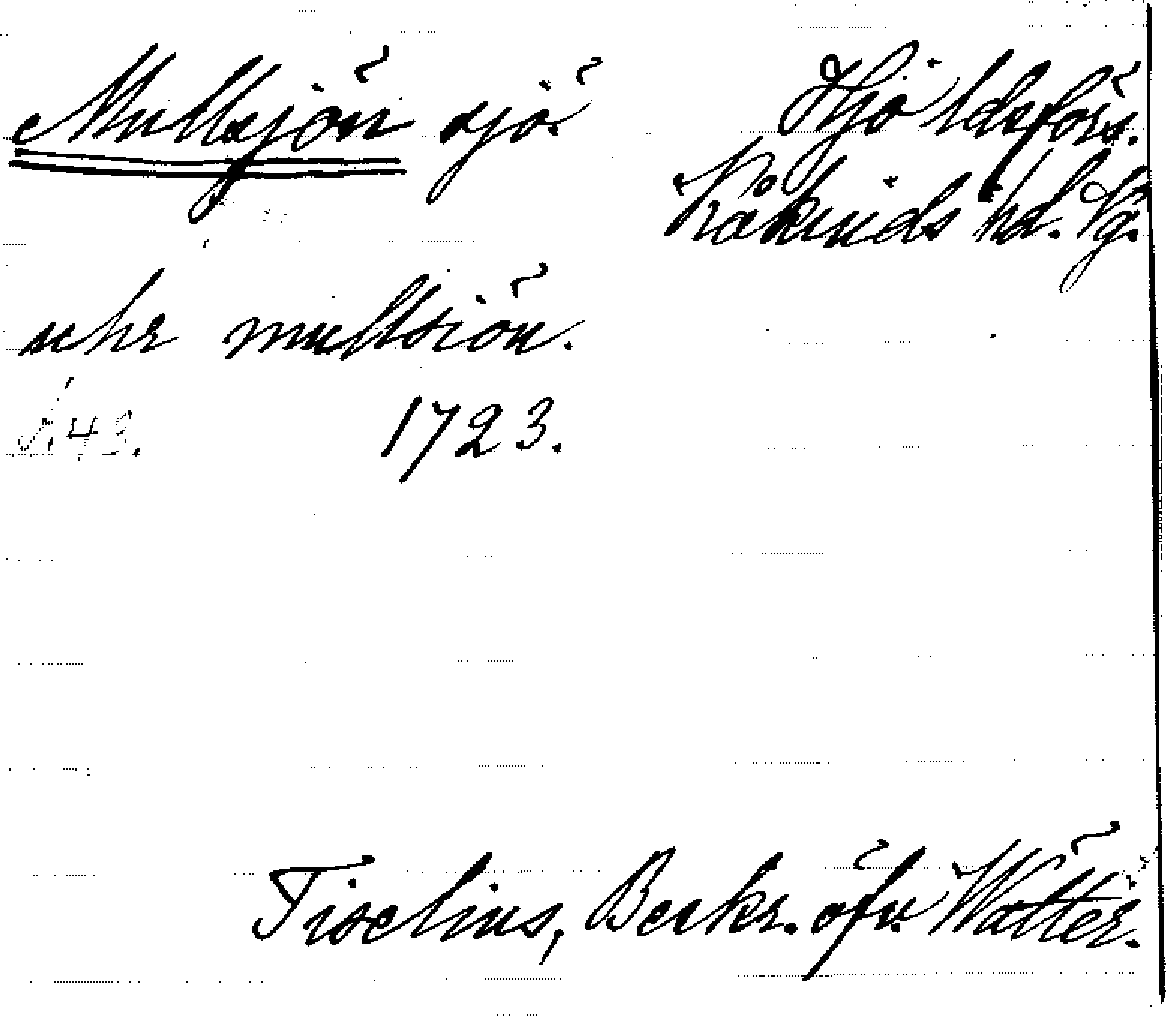 Mullsjön sjö Hjo ldsförs.
Kåkinds hd. Vg.
uhr mullsiön.
s. 43. 1723.
Tiselius, Beskr. öfv. Wätter.